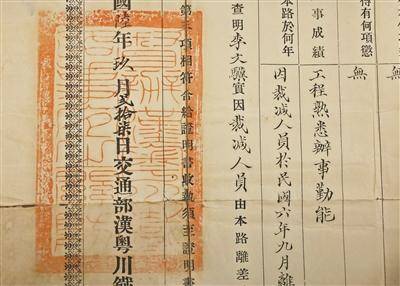 待有何項懲
無
無
事成績
工程熟悉辦事勤能
本路於何年
因裁减人員於民國六年九月離
查明李文驥實因裁减人員由本路離差
第三項相符合給證明書收執須至證明書
國陸年玖月貳拾柒日交通部漢粵川鐵